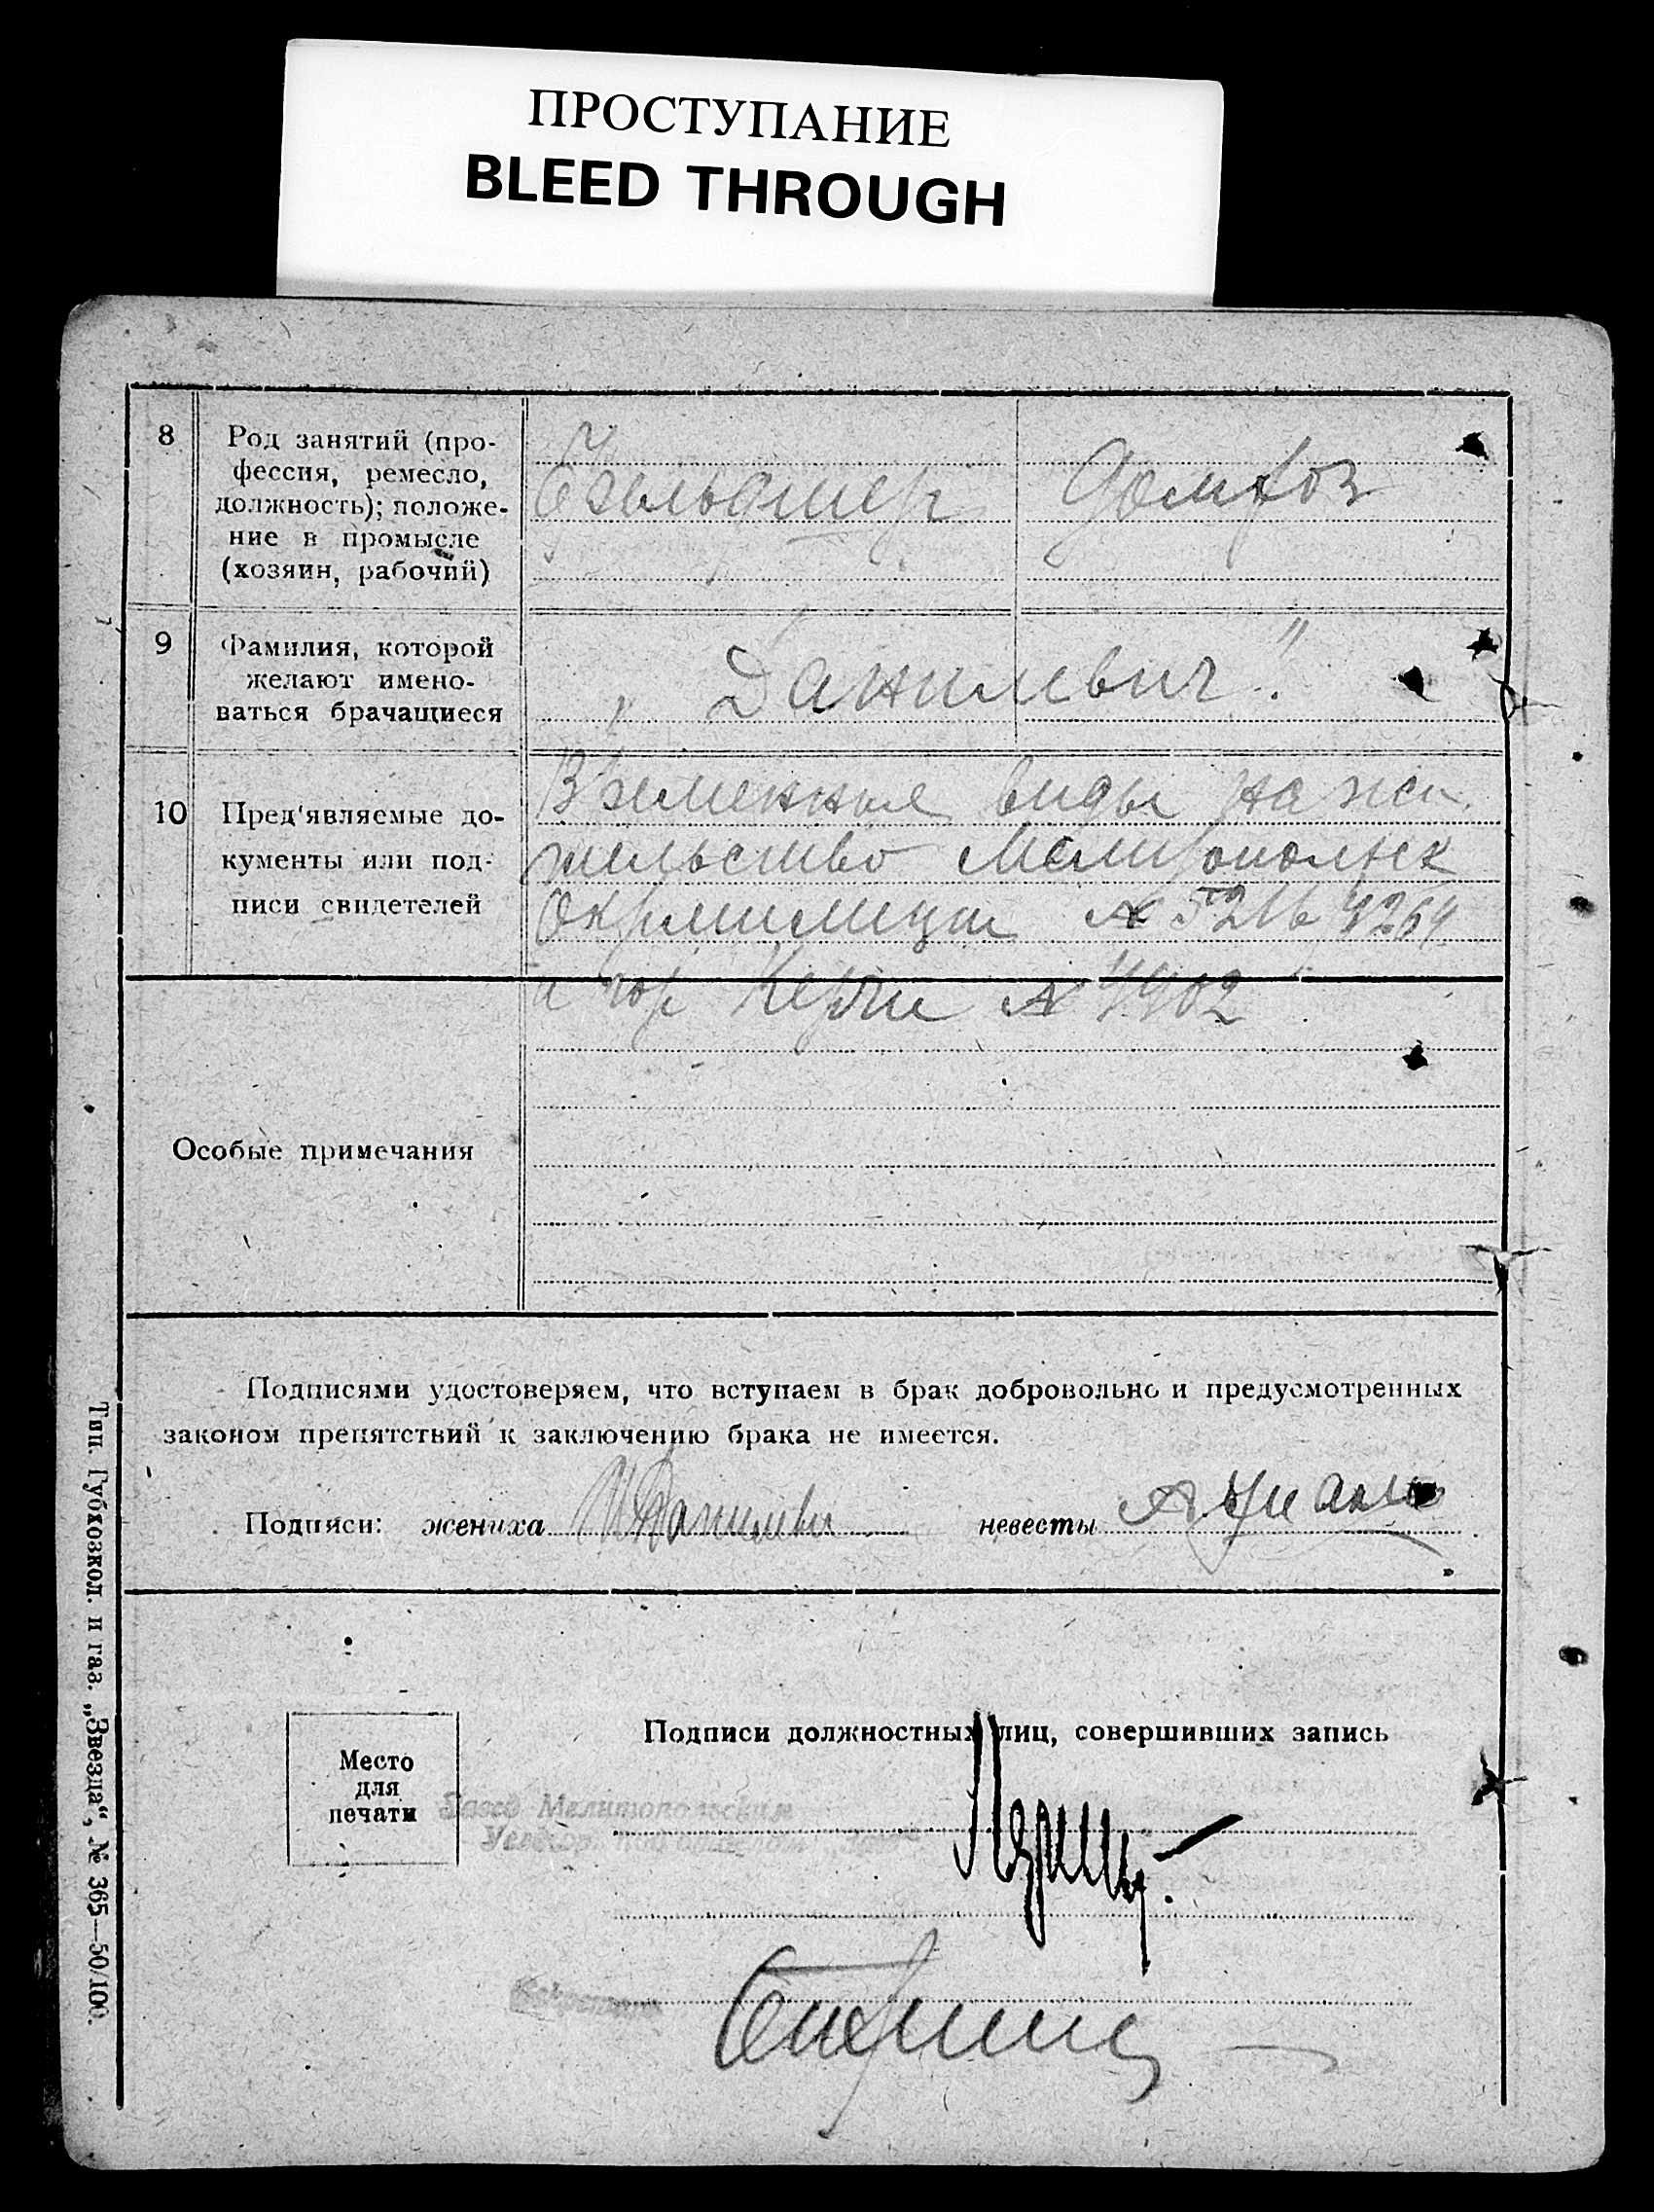 ПРОСТУПАНИЕ
BLEED THROUGH
8
Род занятий (про-
фессия, ремесло,
должность); положе-
ние в промысле
(хозяин, рабочий)
Фельдшер
Домхоз
9
Фамилия, которой
желают имено-
ваться брачащиеся
„Данилевич"
10
Пред'являемые до-
кументы или под-
писи свидетелей
Временные виды на жи-
тельство Мелитопольск
Окрмилиции №
и гор Керчи № 4902
Особые примечания
Подписями удостоверяем, что вступаем в брак добровольно и предусмотренных
законом препятствий к заключению брака не имеется.
Подписи: жениха невесты
Место
для
печати
Подписи должностных лиц, совершивших запись
Завед Мелитопольским
Секретарь
Тип. Губхозкол. и газ. „Звезда“, № 365—50/100.